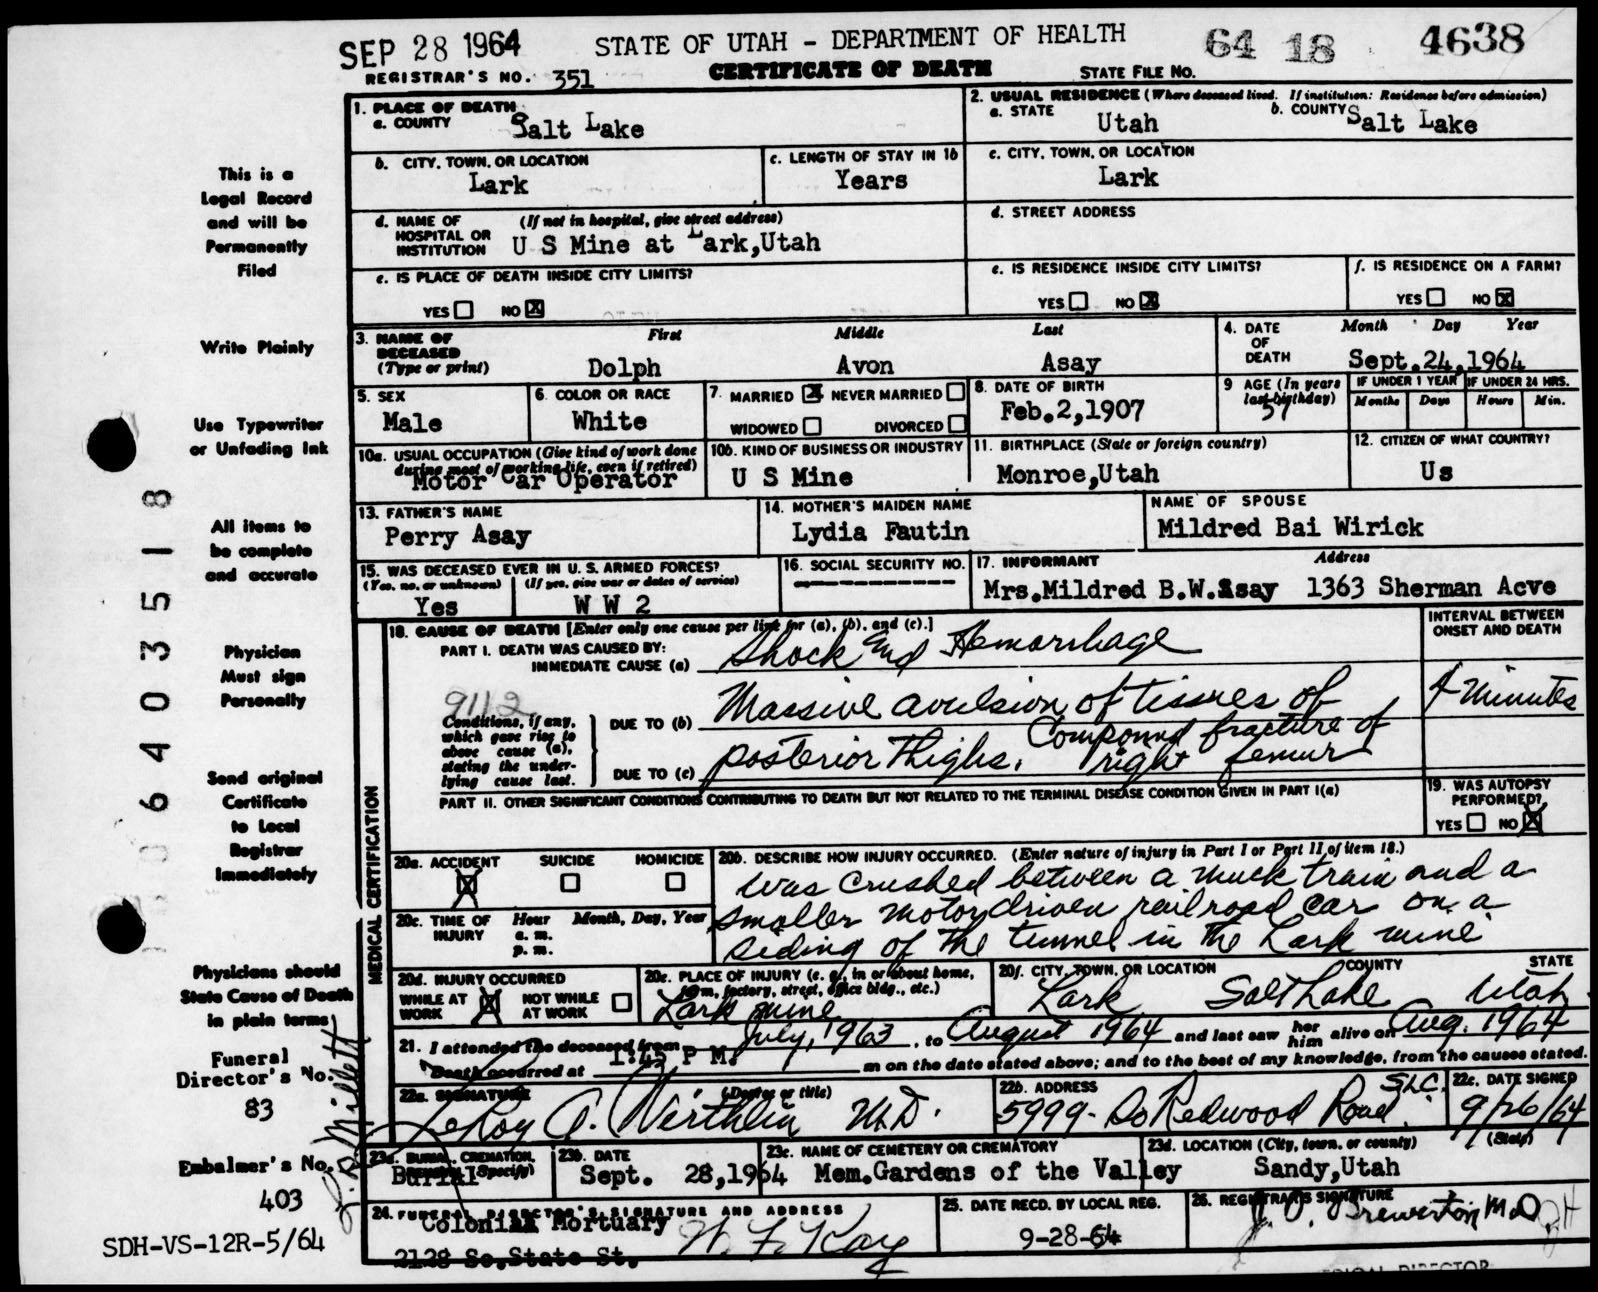 SEP 28 1964
STATE OF UTAH - DEPARTMENT OF HEALTH
64 18 4638
REGISTRAR'S NO. 351
CERTIFICATE OF DEATH
STATE FILE NO.
1. PLACE OF DEATH
a. COUNTY Salt Lake
2. USUAL RESIDENCE (Where deceased lived. If institution: Residence before admission)
a. STATE Utah
b. COUNTY Salt Lake
b. CITY, TOWN, OR LOCATION
Lark
c. LENGTH OF STAY IN 1b
Years
c. CITY, TOWN, OR LOCATION
Lark
d. NAME OF HOSPITAL OR INSTITUTION
(If not in hospital, give street address)
U S Mine at Lark,Utah
d. STREET ADDRESS
e. IS PLACE OF DEATH INSIDE CITY LIMITS?
YES NO X
e. IS RESIDENCE INSIDE CITY LIMITS?
YES NO X
f. IS RESIDENCE ON A FARM?
YES NO X
3. NAME OF DECEASED
(Type or print)
First Middle Last
Dolph Avon Asay
4. DATE OF DEATH
Month Day Year
Sept.24,1964
5. SEX
Male
6. COLOR OR RACE
White
7. MARRIED X NEVER MARRIED
WIDOWED DIVORCED
8. DATE OF BIRTH
Feb.2,1907
9 AGE (In years last birthday)
57
IF UNDER 1 YEAR
Months Days
IF UNDER 24 HRS.
Hours Min.
10a. USUAL OCCUPATION (Give kind of work done during most of working life, even if retired)
Motor Car Operator
10b. KIND OF BUSINESS OR INDUSTRY
U S Mine
11. BIRTHPLACE (State or foreign country)
Monroe,Utah
12. CITIZEN OF WHAT COUNTRY?
Us
13. FATHER'S NAME
Perry Asay
14. MOTHER'S MAIDEN NAME
Lydia Fautin
NAME OF SPOUSE
Mildred Bai Wirick
15. WAS DECEASED EVER IN U. S. ARMED FORCES?
(Yes, no, or unknown) (If yes, give war or dates of service)
Yes W W 2
16. SOCIAL SECURITY NO.
----------
17. INFORMANT Address
Mrs.Mildred B.W.Asay 1363 Sherman Acve
MEDICAL CERTIFICATION
18. CAUSE OF DEATH [Enter only one cause per line for (a), (b), and (c).]
INTERVAL BETWEEN ONSET AND DEATH
PART I. DEATH WAS CAUSED BY:
IMMEDIATE CAUSE (a) Shock and Hemorrhage
9112
Conditions, if any, which gave rise to above cause (a), stating the underlying cause last.
DUE TO (b) Massive avulsion of tissues of
4 minutes
DUE TO (c) posterior thighs. Compound fracture of right femur
PART II. OTHER SIGNIFICANT CONDITIONS CONTRIBUTING TO DEATH BUT NOT RELATED TO THE TERMINAL DISEASE CONDITION GIVEN IN PART I(a)
19. WAS AUTOPSY PERFORMED?
YES NO X
20a. ACCIDENT SUICIDE HOMICIDE
X
20b. DESCRIBE HOW INJURY OCCURRED. (Enter nature of injury in Part I or Part II of item 18.)
was crushed between a muck train and a
smaller motor driven railroad car on a
siding of the tunnel in the Lark mine
20c. TIME OF INJURY
Hour Month, Day, Year
a. m.
p. m.
20d. INJURY OCCURRED
WHILE AT WORK X NOT WHILE AT WORK
20e. PLACE OF INJURY (e. g., in or about home, farm, factory, street, office bldg., etc.)
Lark mine
20f. CITY, TOWN, OR LOCATION COUNTY STATE
Lark Salt Lake Utah
21. I attended the deceased from July, 1963, to August 1964 and last saw her him alive on Aug. 1964
Death occurred at 1:45 P M. m on the date stated above; and to the best of my knowledge, from the causes stated.
22a. SIGNATURE (Degree or title)
LeRoy A. Wirthlin M.D.
22b. ADDRESS
5999 - So Redwood Road SLC.
22c. DATE SIGNED
9/26/64
23a. BURIAL, CREMATION, REMOVAL (Specify)
Burial
23b. DATE
Sept. 28,1964
23c. NAME OF CEMETERY OR CREMATORY
Mem.Gardens of the Valley
23d. LOCATION (City, town, or county) (State)
Sandy,Utah
24. FUNERAL DIRECTOR'S SIGNATURE AND ADDRESS
Colonial Mortuary
2128 So,State St.
W. F. Kay
25. DATE RECD. BY LOCAL REG.
9-28-64
26. REGISTRAR'S SIGNATURE
Brewerton M.D.
MEDICAL DIRECTOR
This is a
Legal Record
and will be
Permanently
Filed
Write Plainly
Use Typewriter
or Unfading Ink
All items to
be complete
and accurate
Physician
Must sign
Personally
Send original
Certificate
to Local
Registrar
Immediately
Physicians should
State Cause of Death
in plain terms
Funeral
Director's No.
83
Embalmer's No.
403
SDH-VS-12R-5/64
Millett
0 6 4 0 3 5 1 8